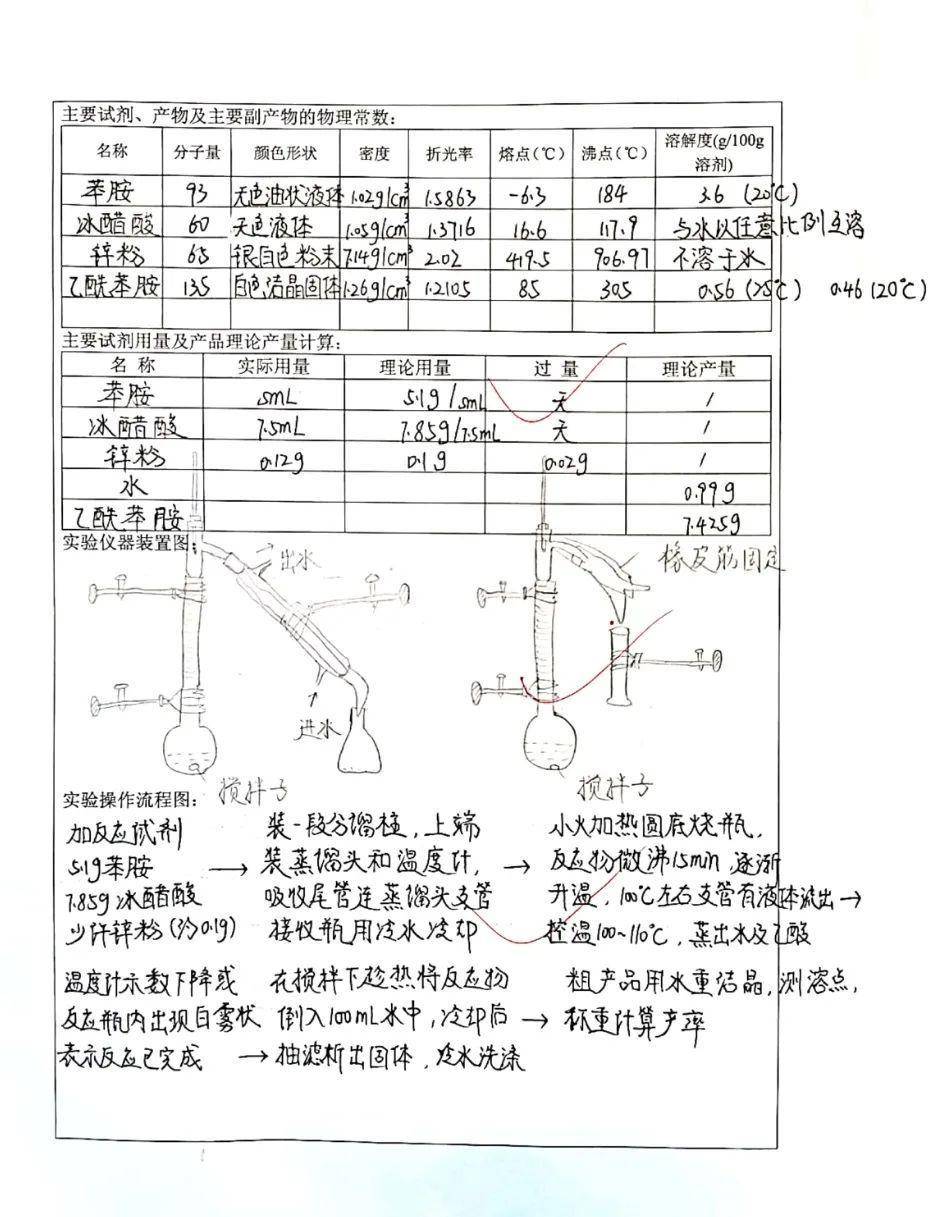 主要试剂、产物及主要副产物的物理常数:
名称 分子量 颜色形状 密度 折光率 熔点(℃) 沸点(℃) 溶解度(g/100g溶剂)
苯胺 93 无色油状液体 1.02g/cm³ 1.5863 -6.3 184 3.6 (20℃)
冰醋酸 60 无色液体 1.05g/cm³ 1.3716 16.6 117.9 与水以任意比例互溶
锌粉 65 银白色粉末 7.14g/cm³ 2.02 419.5 906.97 不溶于水
乙酰苯胺 135 白色结晶固体 1.26g/cm³ 1.2105 85 305 0.56 (25℃) 0.46 (20℃)
主要试剂用量及产品理论产量计算:
名 称 实际用量 理论用量 过 量 理论产量
苯胺 5mL 5.1g/5mL 无 /
冰醋酸 7.5mL 7.85g/7.5mL 无 /
锌粉 0.12g 0.1g 0.02g /
水 0.99g
乙酰苯胺 7.425g
实验仪器装置图:
出水
橡皮筋固定
进水
搅拌子
搅拌子
实验操作流程图:
加反应试剂
5.1g苯胺
7.85g冰醋酸
少许锌粉(约0.1g)
→
装一段分馏柱,上端
装蒸馏头和温度计,
吸收尾管连蒸馏头支管
接收瓶用冷水冷却
→
小火加热圆底烧瓶,
反应物微沸15min,逐渐
升温,100℃左右支管有液体流出→
控温100~110℃,蒸出水及乙酸
温度计示数下降或
反应瓶内出现白雾状
表示反应已完成
→
在搅拌下趁热将反应物
倒入100mL水中,冷却后
抽滤析出固体,冷水洗涤
→
粗产品用水重结晶,测溶点,
称重计算产率